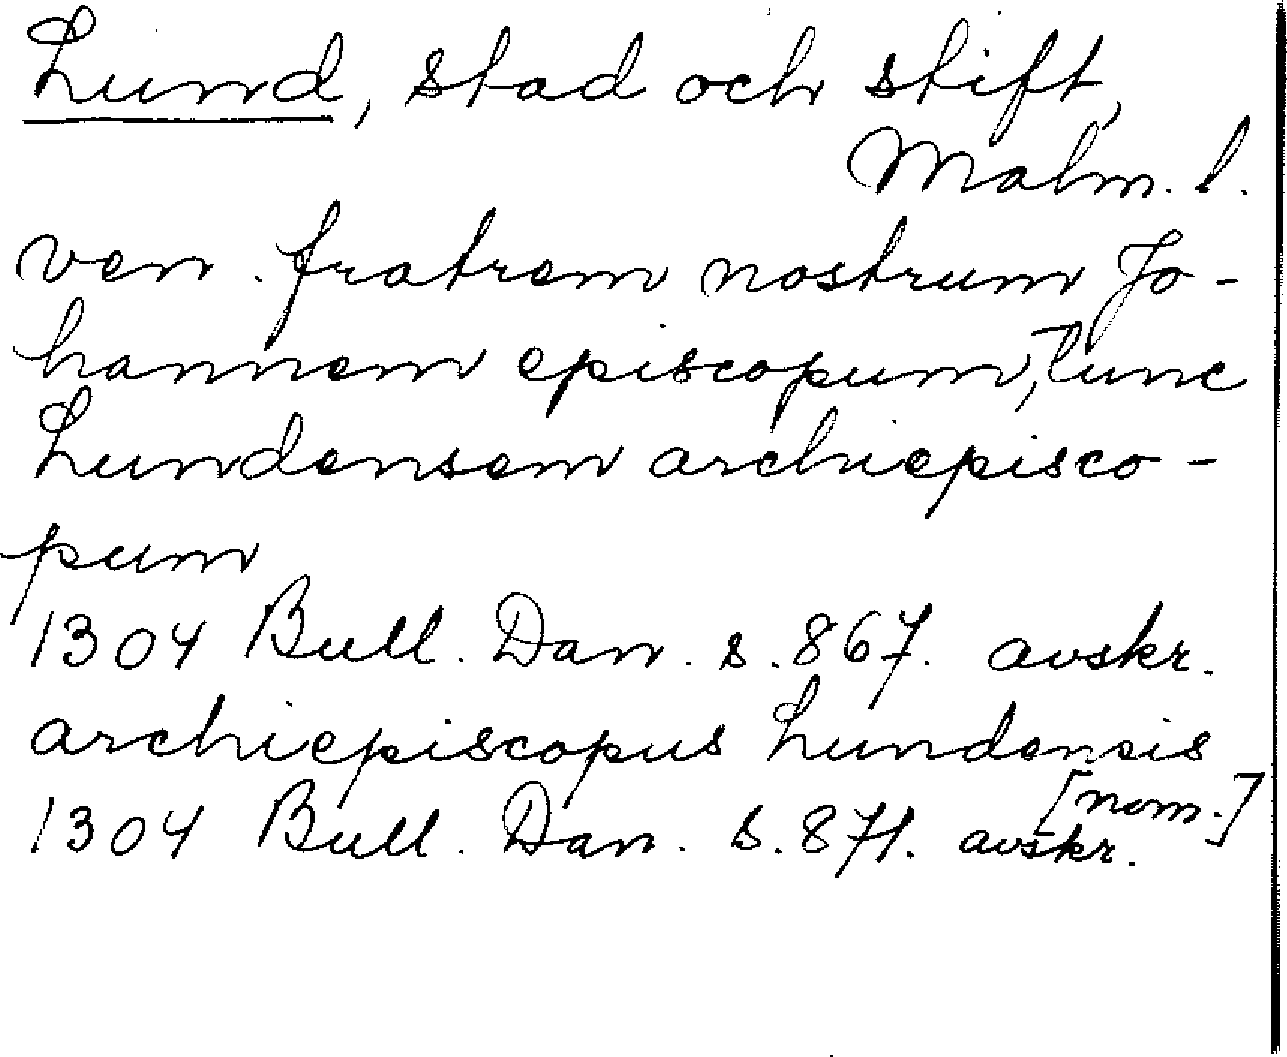 Lund, stad och stift,
Malm. l.
ven. fratrem nostrum Jo-
hannem episcopum, tunc
Lundensem archiepisco-
pum
1304 Bull. Dan. s. 867. avskr.
archiepiscopus Lundensis
[nom.]
1304 Bull. Dan. s. 871. avskr.